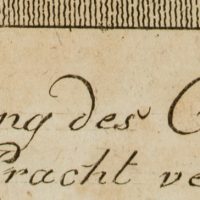 ng des
Pracht ve